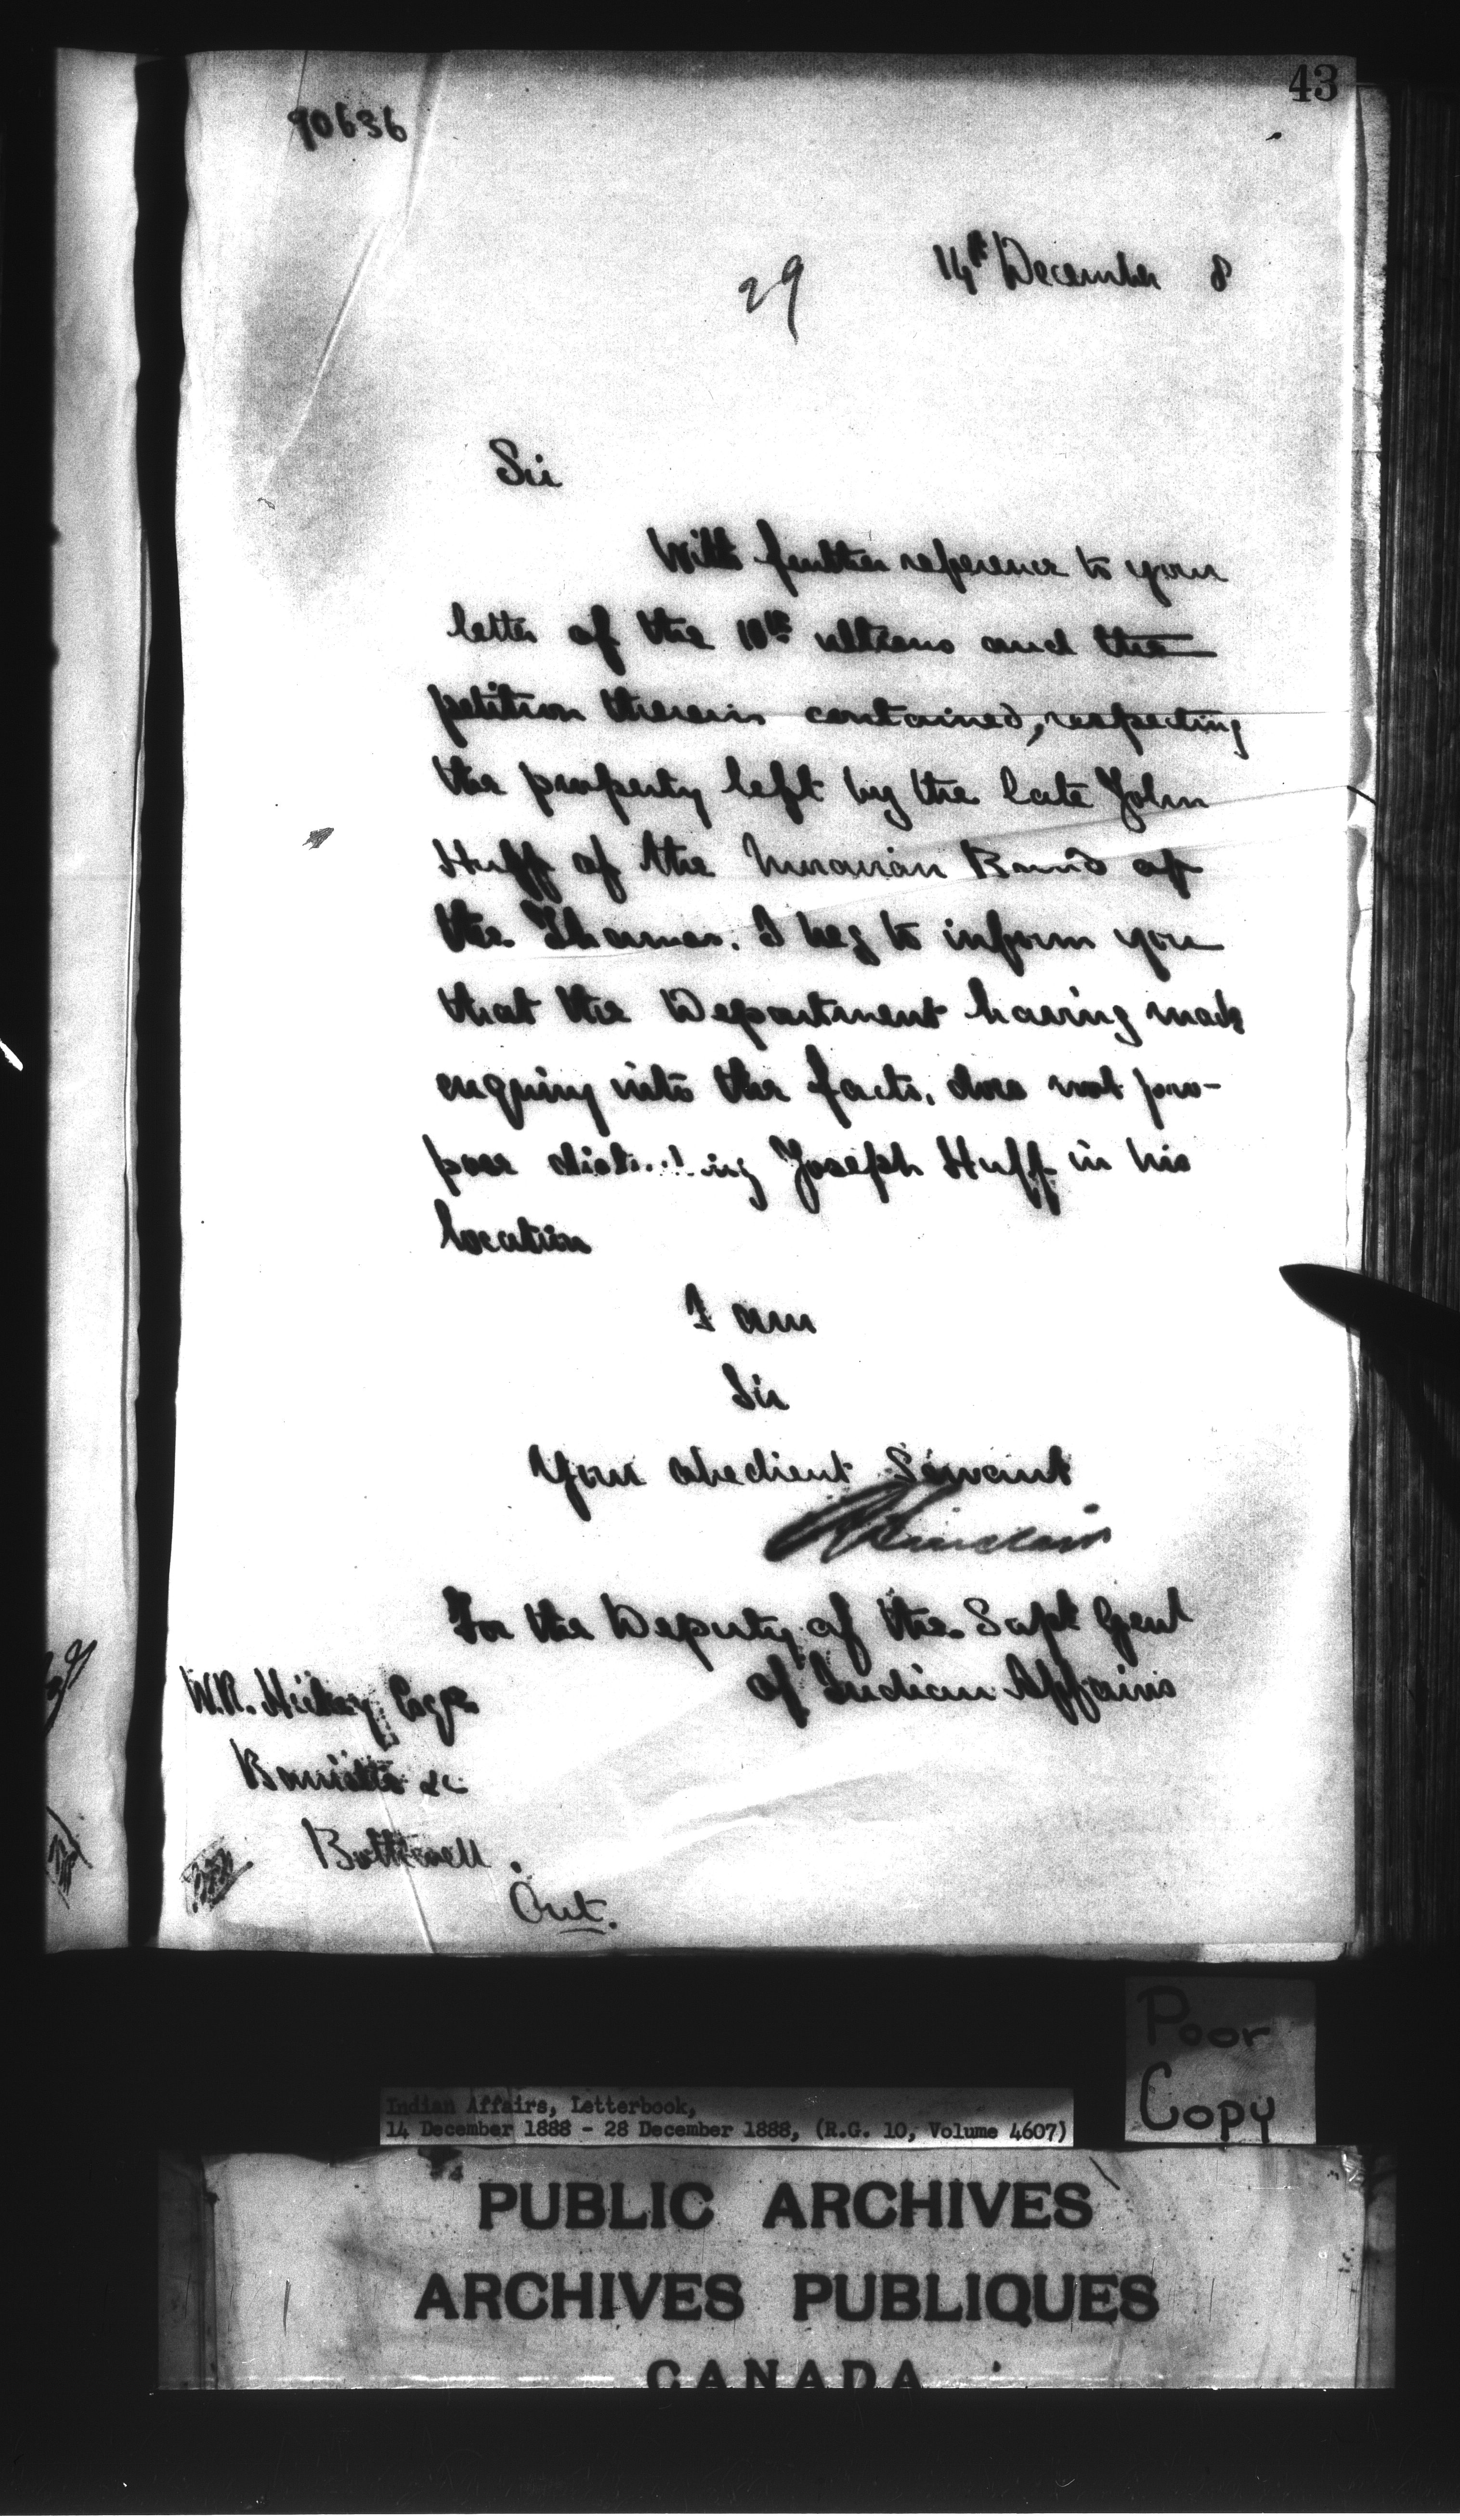 43
90636
29
14th December 8
Sir
With further reference to your
letter of the 10th ultimo and the
petition therein contained, respecting
the property left by the late John
Huff of the Moravian Band of
the Thames. I beg to inform you
that the Department having made
enquiry into the facts, does not pro-
pose disturbing Joseph Huff in his
location
I am
Sir
Your obedient Servant
R Sinclair
For the Deputy of the Supt Genl
of Indian Affairs
W.R. Hickey Esqre
Barrister &c
Bothwell.
Ont.
Poor
Copy
Indian Affairs, Letterbook,
14 December 1888 - 28 December 1888, (R.G. 10, Volume 4607)
PUBLIC ARCHIVES
ARCHIVES PUBLIQUES
CANADA